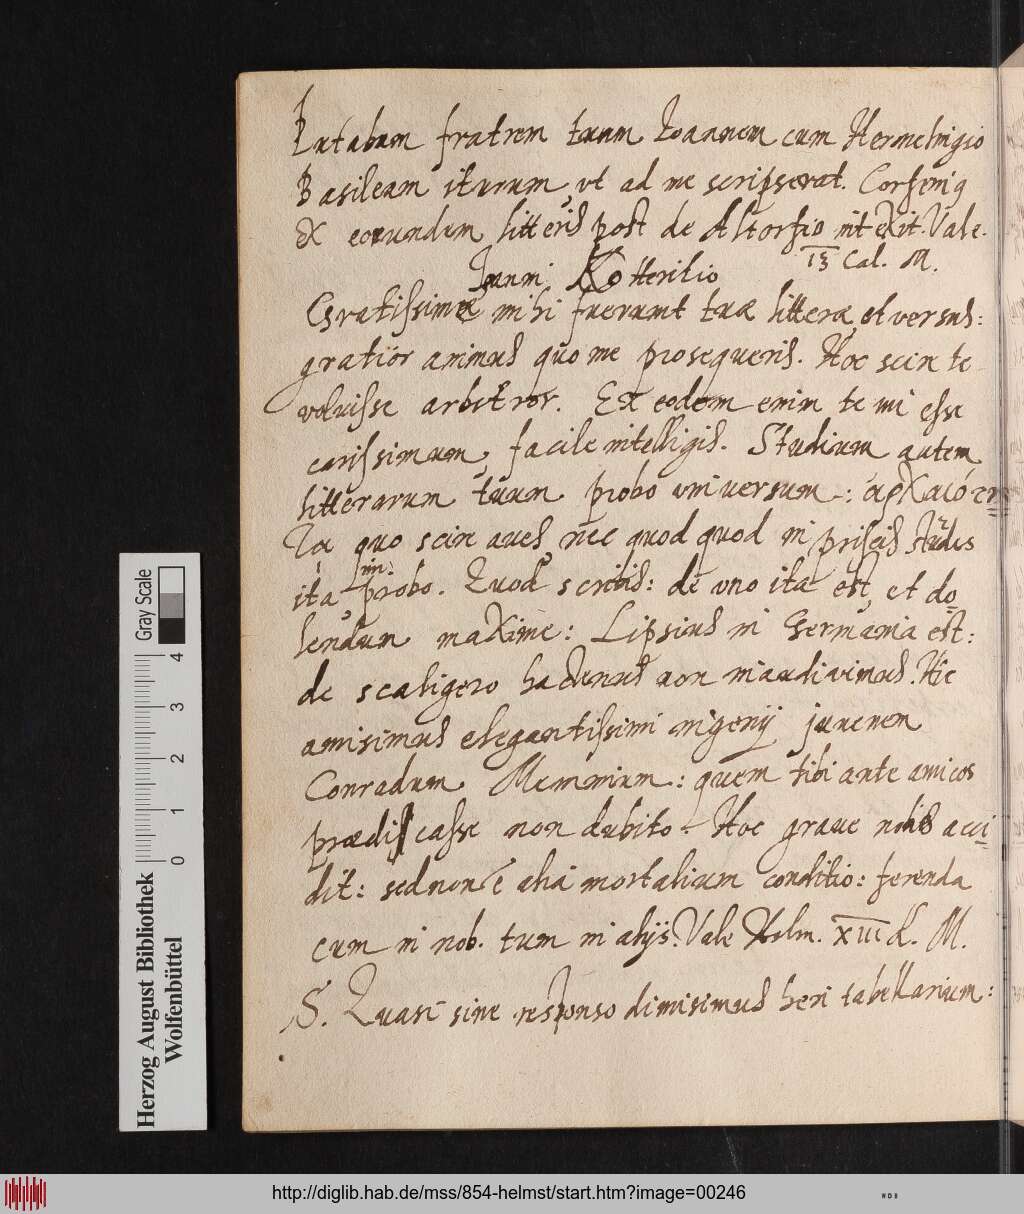 Putabam fratrem tuum Ioannem cum Hermelnigio
Basileam iturum, ut ad me scripserat.
ex eorundem litteris post de Altorfio Vale.
13 Cal. M.
Gratissimæ mihi fuerunt tuæ litteræ, et versus:
gratior animus quo me prosequeris. Hoc scire te
voluisse arbitror. Ex eodem enim te mi esse
carissimum, facile intelligis. Studium autem
litterarum tuum probo universum: ἀρχαιότη
τα quo scire aves, nec quod quod in priscis
ita probo. Quod scribis: de uno ita est, et do
lendum maxime: Lipsius in Germania est:
de scaligero hactenus non inaudivimus. Hic
amisimus elegantissimi ingenij juvenem
Conradum Memmium: quem tibi ante amicos
prædicasse non dubito. Hoc grave nobis acci
dit: sed non é alia mortalium conditio: ferenda
cum in nob. tum in alijs. Vale Helm. XIII K. M.
S. Quasi sine responso dimisimus heri tabellarium:
Gray Scale
4
3
2
1
0
Herzog August Bibliothek
Wolfenbüttel
http://diglib.hab.de/mss/854-helmst/start.htm?image=00246